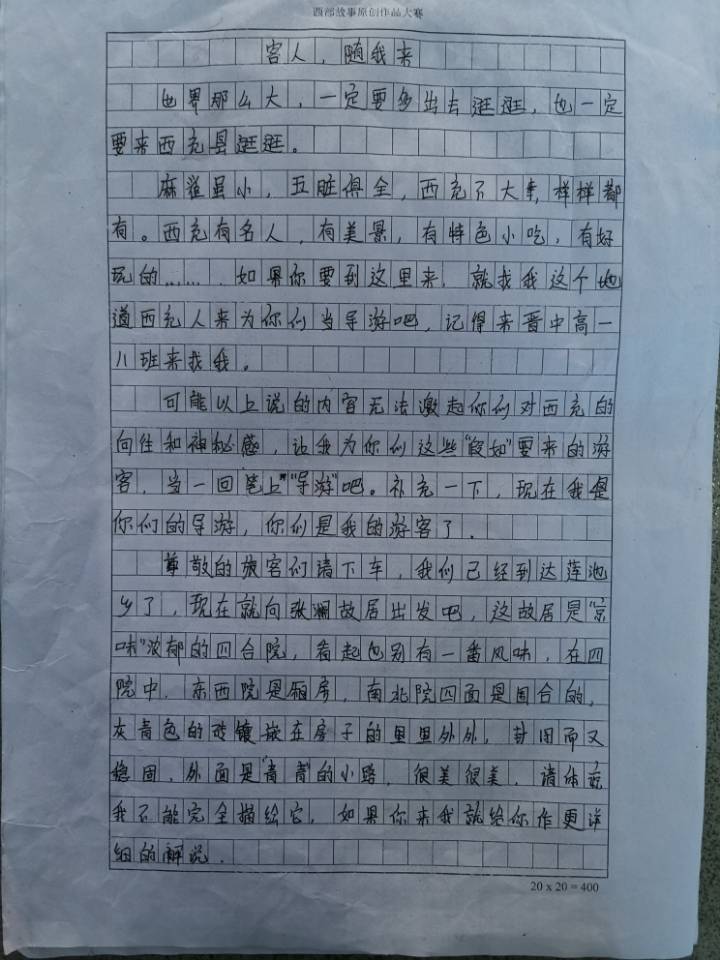 西部故事原创作品大赛
客人，随我来
世界那么大，一定要多出去逛逛，也一定
要来西充县逛逛。
麻雀虽小，五脏俱全，西充不大，样样都
有。西充有名人，有美景，有特色小吃，有好
玩的……．如果你要到这里来．就找我这个地
道西充人来为你们当导游吧，记得来晋中高一
八班来找我。
可能以上说的内容无法激起你们对西充的
向往和神秘感，让我为你们这些“假如”要来的游
客，当一回笔上“导游”吧。补充一下，现在我是
你们的导游，你们是我的游客了．
尊敬的旅客们请下车，我们已经到达莲池
乡了，现在就向张澜故居出发吧，这故居是“京
味”浓郁的四合院，看起也别有一番风味．在四
院中．东西院是厢房，南北院四面是围合的，
灰青色的砖镶嵌在房子的里里外外，封闭而又
稳固．外面是“青青”的小路，很美很美．请体谅
我不能完全描绘它．如果你来我就给你作更详
细的解说．
20 x 20 = 400